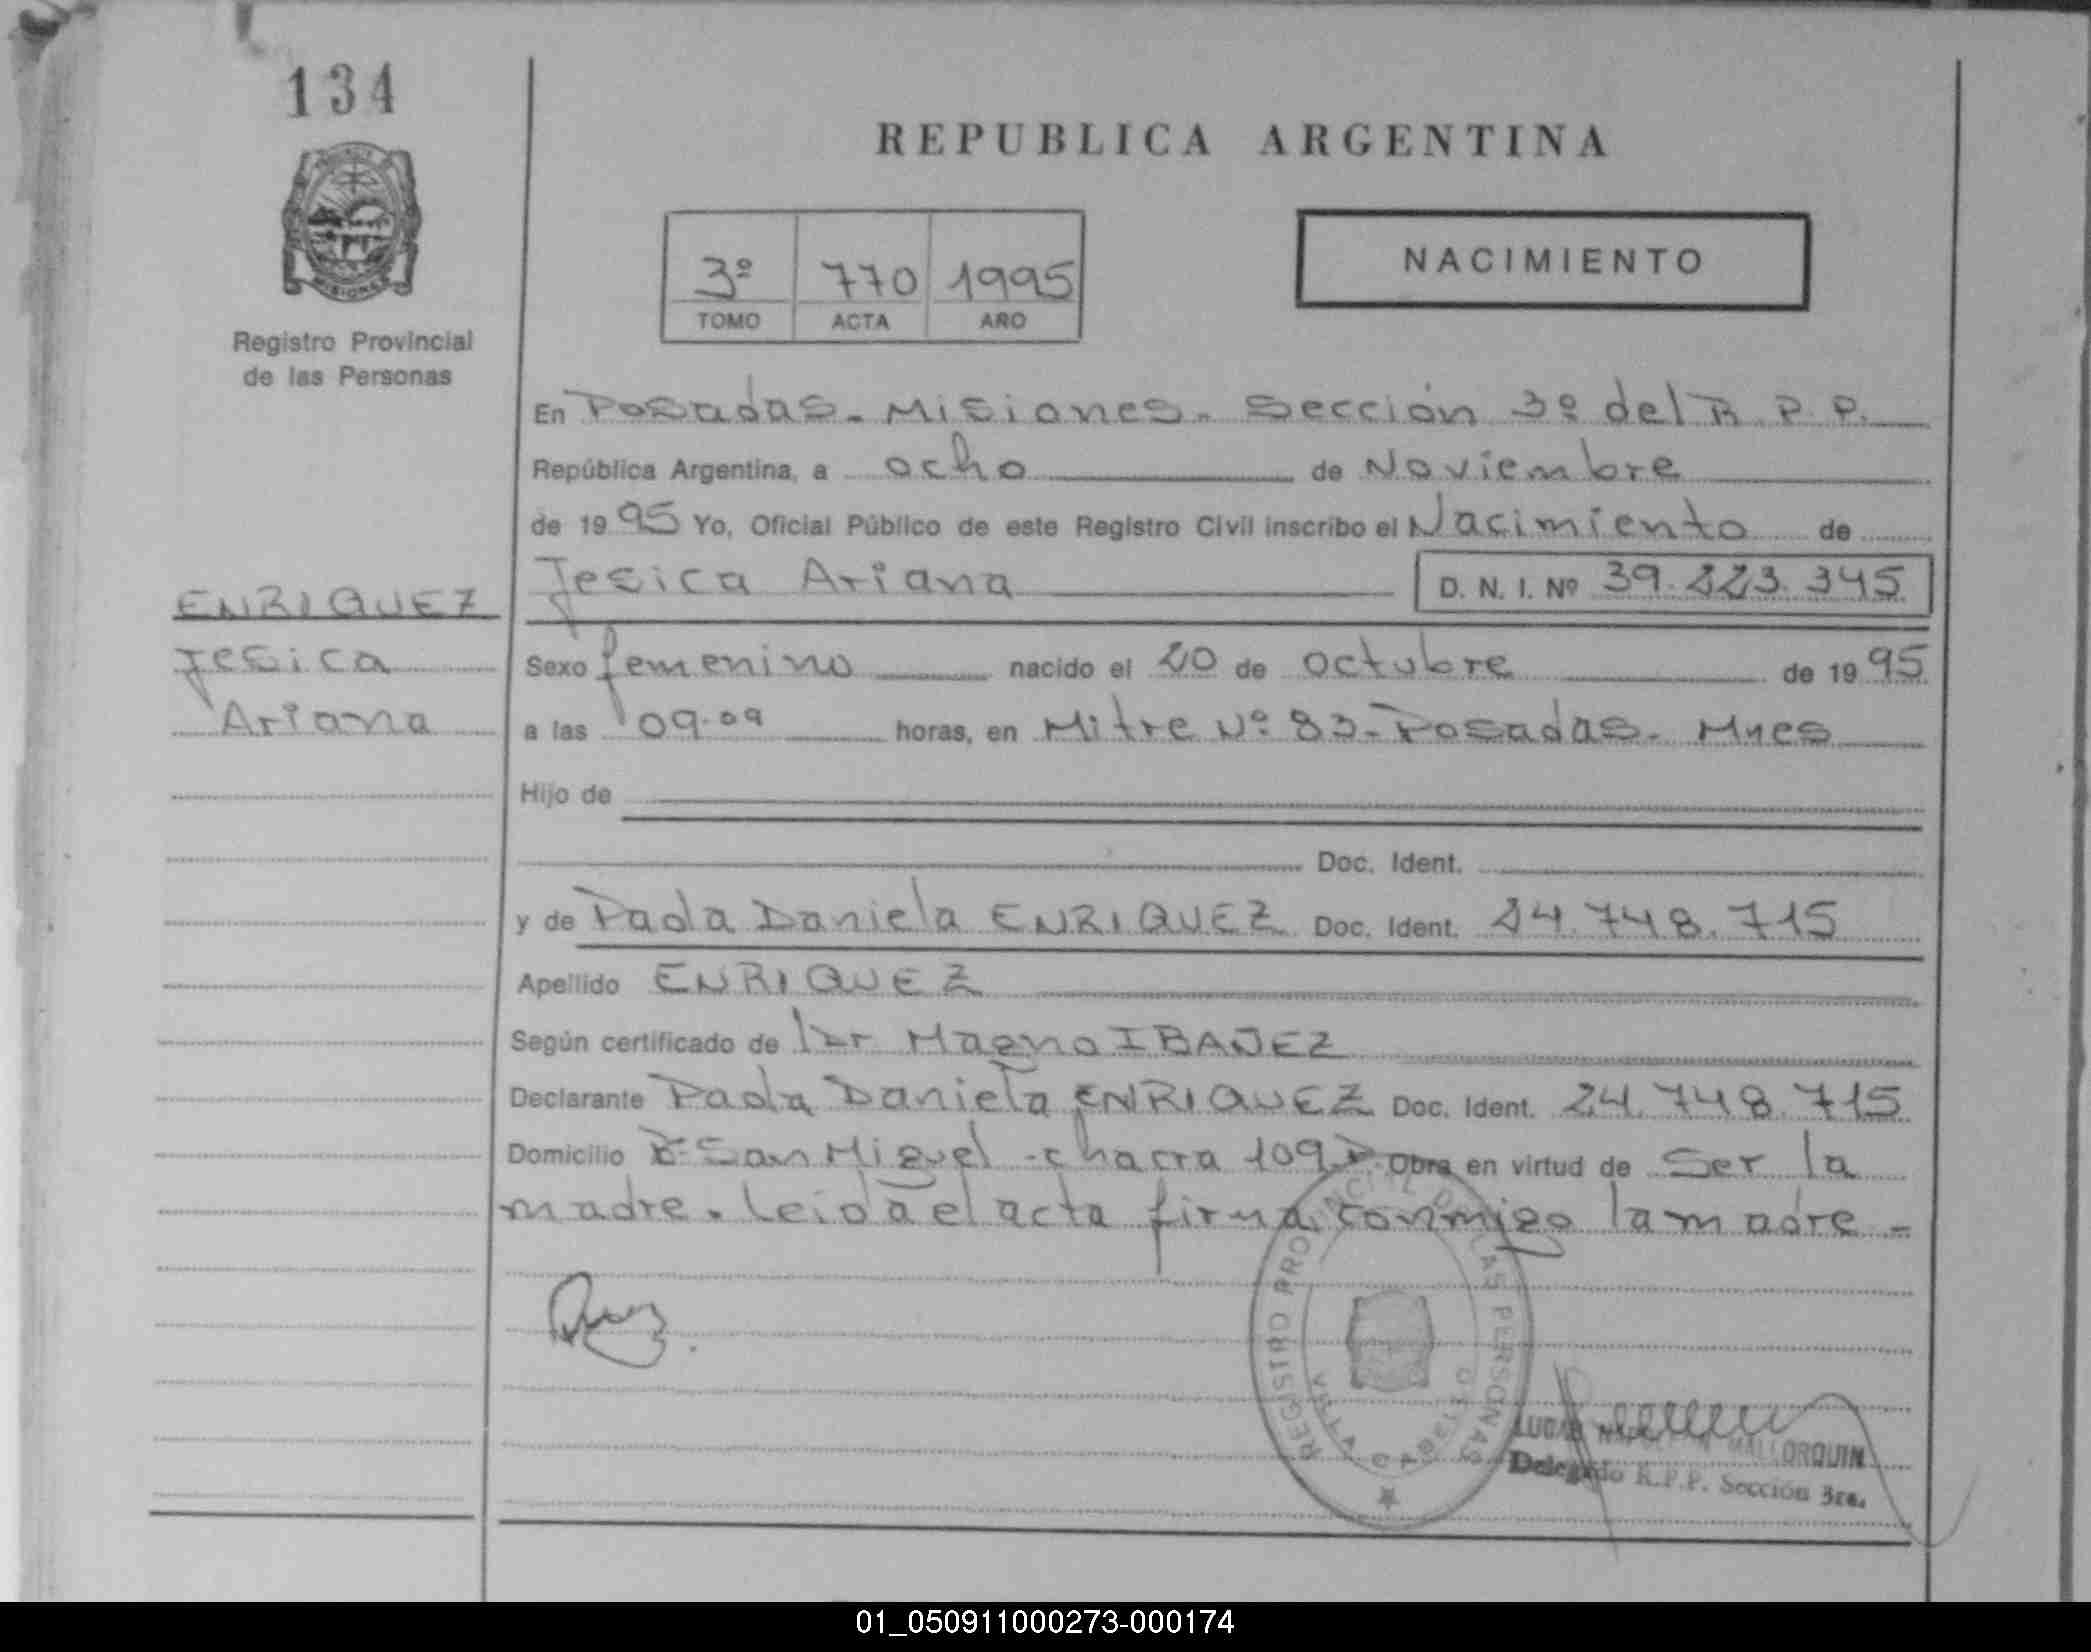 134
REPUBLICA ARGENTINA
3º 770 1995
TOMO ACTA AÑO
NACIMIENTO
Registro Provincial
de las Personas
En Posadas - Misiones - Sección 3º del R. P. P.
República Argentina, a ocho de Noviembre
de 1995 Yo, Oficial Público de este Registro Civil inscribo el Nacimiento de
Jesica Ariana D. N. I. Nº 39.223.345
ENRIQUEZ
Jesica
Ariana
Sexo femenino nacido el 20 de octubre de 1995
a las 09.09 horas, en Mitre Nº 83 - Posadas - Mnes
Hijo de
Doc. Ident.
y de Paola Daniela ENRIQUEZ Doc. Ident. 24.748.715
Apellido ENRIQUEZ
Según certificado de Dr Magno IBAÑEZ
Declarante Paola Daniela ENRIQUEZ Doc. Ident. 24.748.715
Domicilio San Miguel - chacra 109 Obra en virtud de Ser la
madre. Leída el acta firma conmigo la madre -
REGISTRO PROVINCIAL DE LAS PERSONAS
MALLORQUIN
Delegado R.P.P. Sección 3ra.
01_050911000273-000174